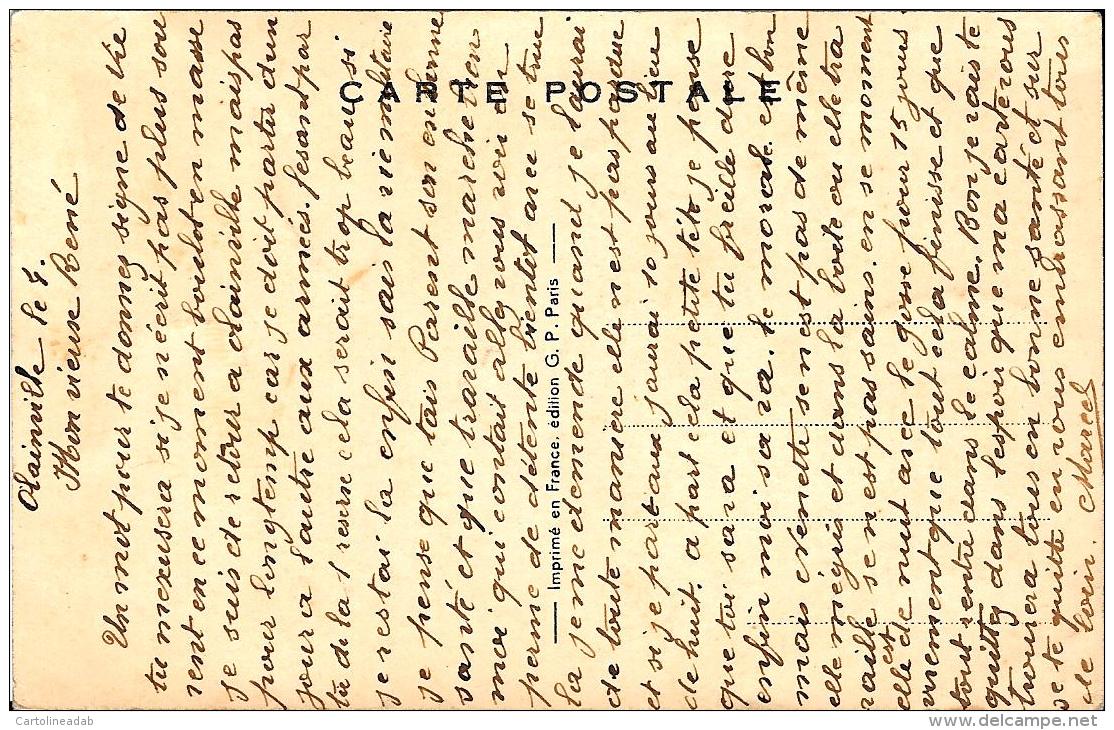 Clainville le 4.
Mon vieux René
Un mot pour te donnes signe de vie
tu mexusera si je nécrit pas plus sou
vent en ce moment boulot en masse
je suis de retour a clainville mais pas
pour longtemp car je doit partir d'un
jour a l'autre aux armées. fesant par
tie de la 1 reserve cela serait trop beau si
je restai la enfin sais la vie militaire
je pense que tais Parent son en bonne
santé et que travaille marche bien
moi qui contait allez vous voir en
perme de détente bientot avec se truc
la je me demende quant je l'aurai
de toute maniere elle n'est pas perdue
et si je part aux j'aurai 10 jours au lieu
de huit. a part cela petite tête je pense
que toi sava et que tu freille dure
enfin moi sa va. le morale est bon
mais Venette se n'est pas de même
elle mégris et dans la boite ou elle tra
vaille se n'est pas sains. en se moment
elle est de nuit avec le gosse pour 15 jours
vivement que tout cela finisse et que
tout rentre dans le calme. Bon je vais te
quitty dans l'espoir que ma carte vous
trouvera tous en bonne santé et sur
se te quitte en vous embrassant tous
de loin. Marcel
CARTE POSTALE
Imprimé en France. édition G. P. Paris
Cartolineadab
delcampe.net